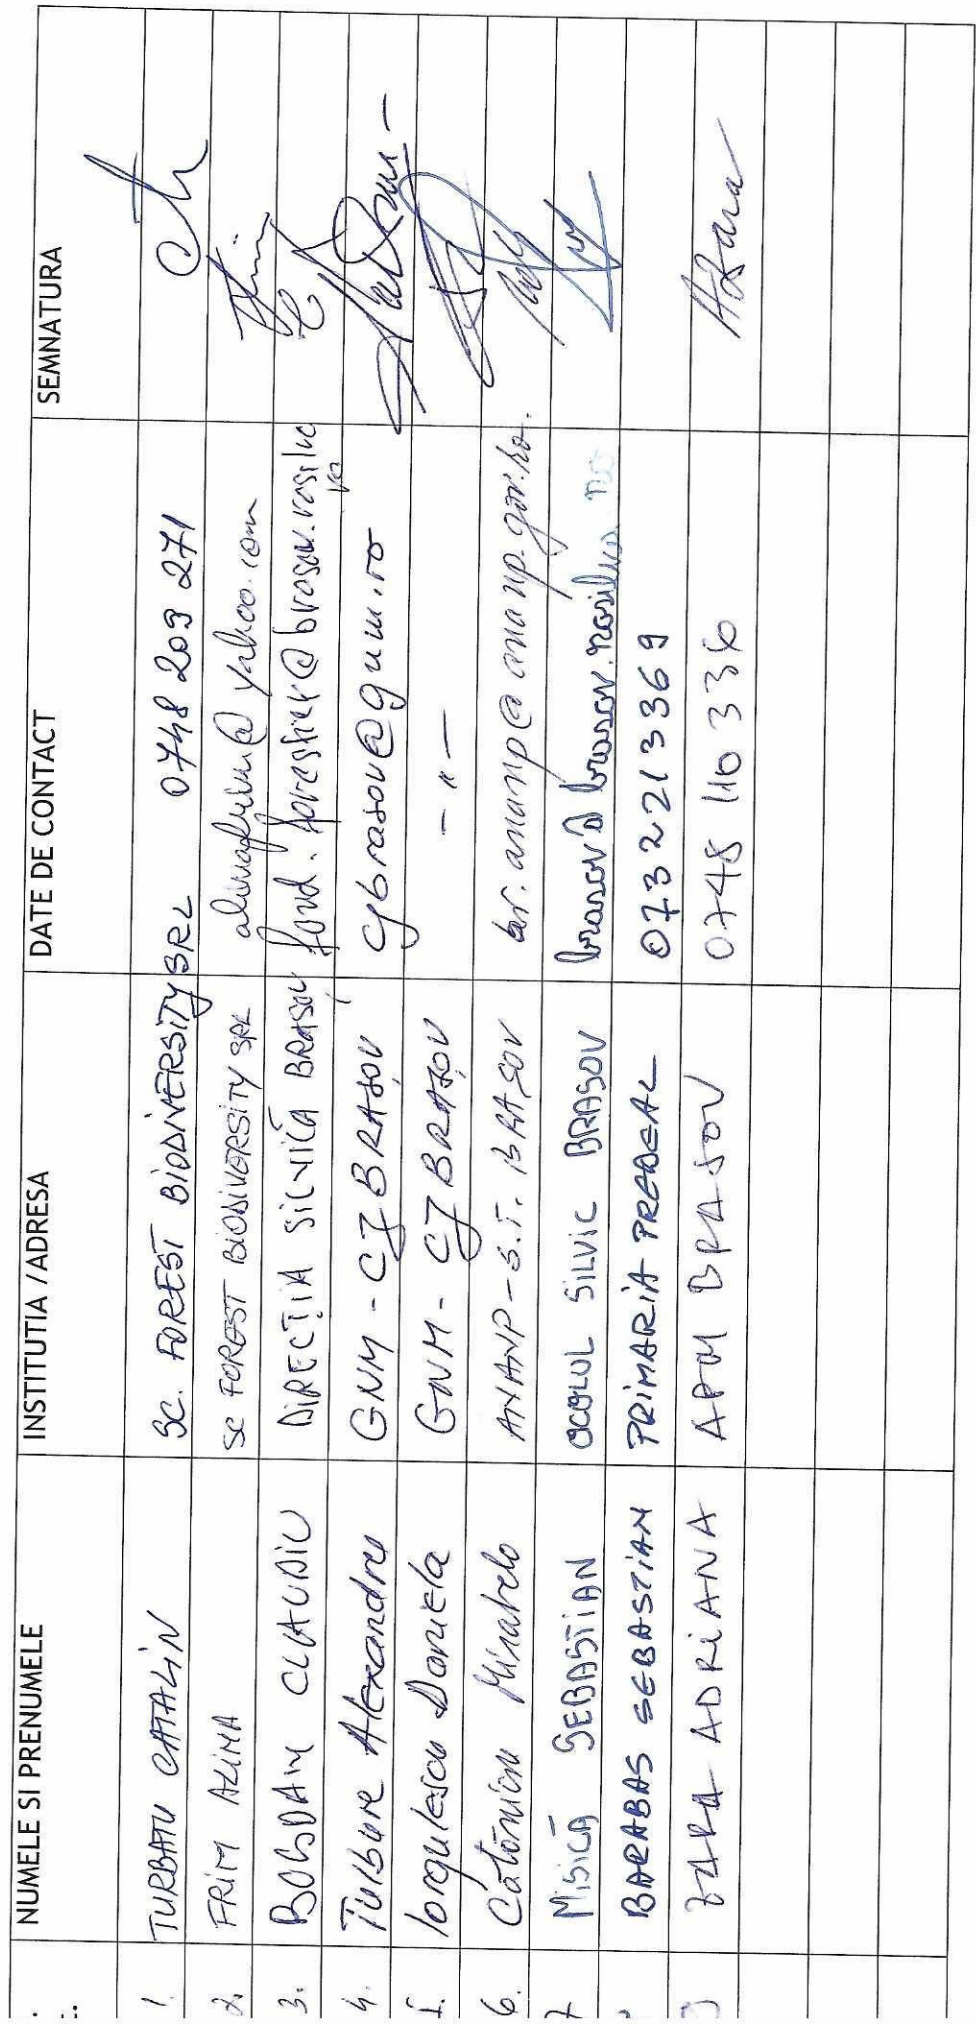 NUMELE SI PRENUMELE INSTITUTIA /ADRESA DATE DE CONTACT SEMNATURA
1. TURBATU CATALIN SC. FOREST BIODIVERSITY SRL 0748 209 271
2. FRIM ALINA SC FOREST BIODIVERSITY SRL alinafrim@yahoo.com
3. BOGDAN CLAUDIU DIRECȚIA SILVICĂ BRAȘOV fond.forestier@brasov.rosilva
ro
4. Turbure Alexandru GNM - CJ BRAȘOV cjbrasov@gnm.ro
5. Iorgulescu Daniela GNM - CJ BRAȘOV - " -
6. Cătănici Mirabela ANANP - S.T. BRAȘOV bv.ananp@ananp.gov.ro.
7 Misică SEBASTIAN OCOLUL SILVIC BRASOV brasov@brasov.rosilva.ro
BARABAS SEBASTIAN PRIMARIA PREDEAL 0732213369
ZARA ADRIANA APM BRASOV 0748 110 336 AZara